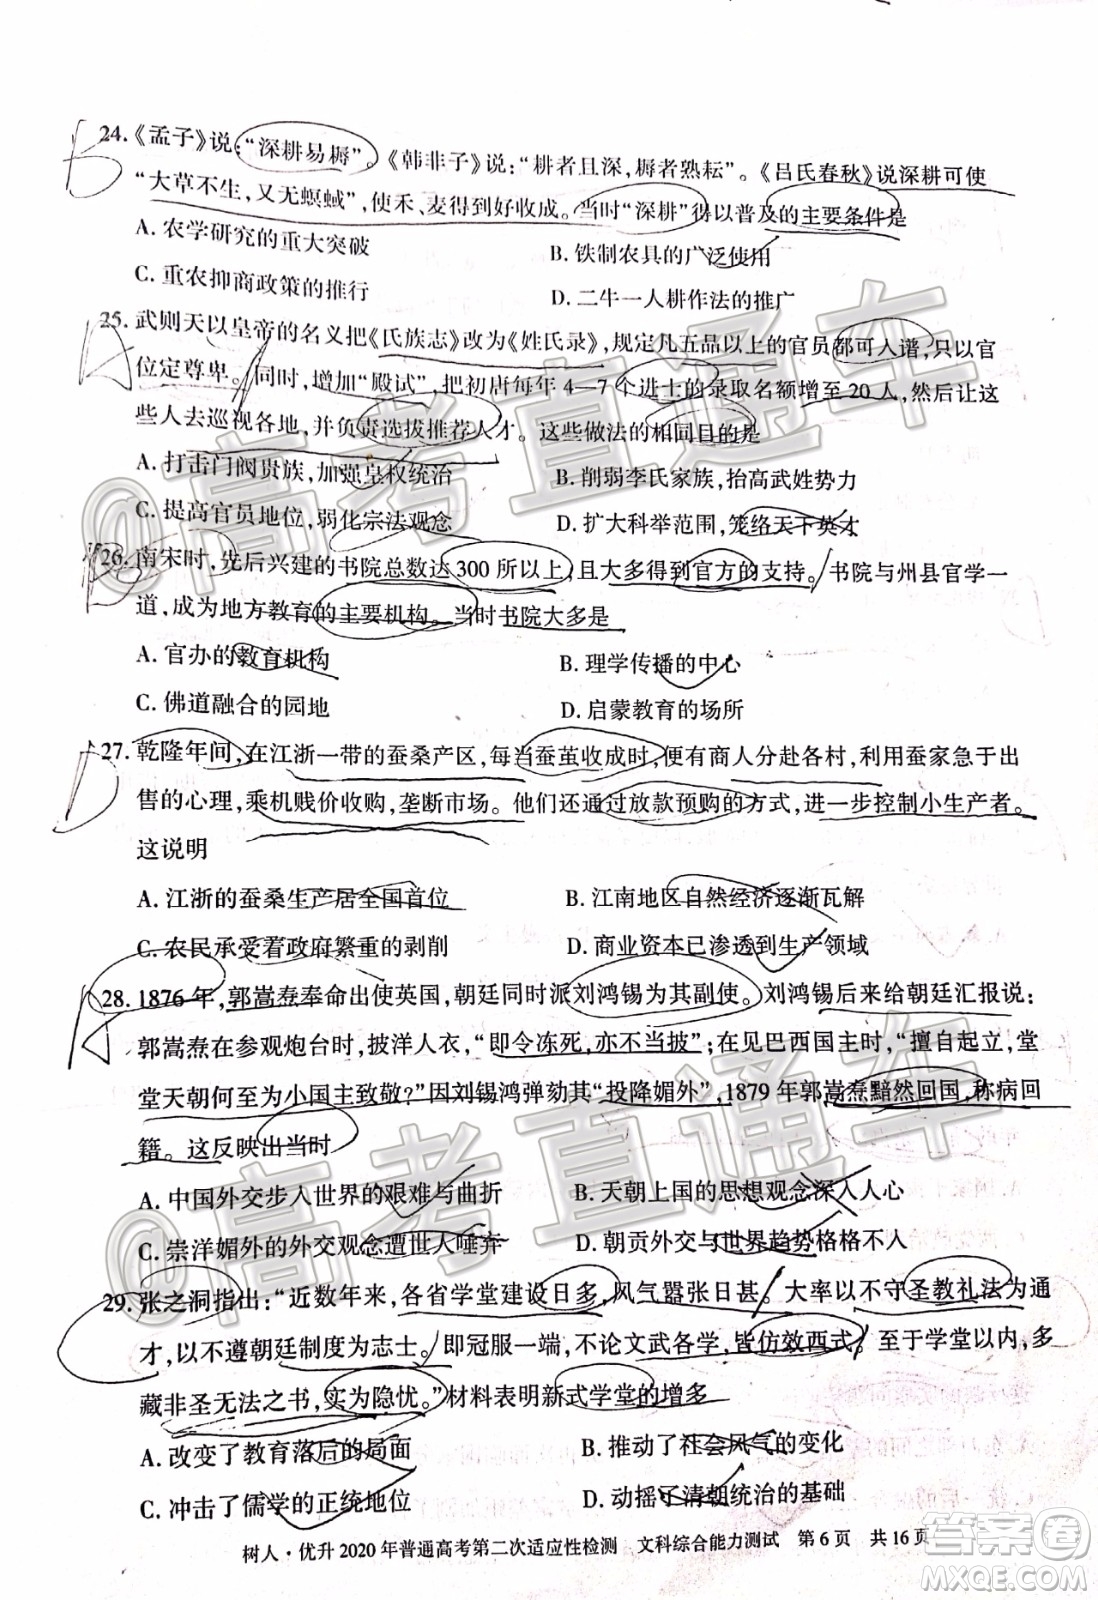 24.《孟子》说:“深耕易耨”。《韩非子》说:“耕者且深,耨者熟耘”。《吕氏春秋》说深耕可使
“大草不生,又无螟蜮”,使禾、麦得到好收成。当时“深耕”得以普及的主要条件是
A. 农学研究的重大突破 B. 铁制农具的广泛使用
C. 重农抑商政策的推行 D. 二牛一人耕作法的推广
25. 武则天以皇帝的名义把《氏族志》改为《姓氏录》,规定凡五品以上的官员都可入谱,只以官
位定尊卑。同时,增加“殿试”,把初唐每年4—7个进士的录取名额增至20人,然后让这
些人去巡视各地,并负责选拔推荐人才。这些做法的相同目的是
A. 打击门阀贵族,加强皇权统治 B. 削弱李氏家族,抬高武姓势力
C. 提高官员地位,弱化宗法观念 D. 扩大科举范围,笼络天下英才
26. 南宋时,先后兴建的书院总数达300所以上,且大多得到官方的支持。书院与州县官学一
道,成为地方教育的主要机构。当时书院大多是
A. 官办的教育机构 B. 理学传播的中心
C. 佛道融合的园地 D. 启蒙教育的场所
27. 乾隆年间,在江浙一带的蚕桑产区,每当蚕茧收成时,便有商人分赴各村,利用蚕家急于出
售的心理,乘机贱价收购,垄断市场。他们还通过放款预购的方式,进一步控制小生产者。
这说明
A. 江浙的蚕桑生产居全国首位 B. 江南地区自然经济逐渐瓦解
C. 农民承受着政府繁重的剥削 D. 商业资本已渗透到生产领域
28. 1876年,郭嵩焘奉命出使英国,朝廷同时派刘鸿锡为其副使。刘鸿锡后来给朝廷汇报说:
郭嵩焘在参观炮台时,披洋人衣,“即令冻死,亦不当披”;在见巴西国主时,“擅自起立,堂
堂天朝何至为小国主致敬?”因刘锡鸿弹劾其“投降媚外”,1879年郭嵩焘黯然回国,称病回
籍。这反映出当时
A. 中国外交步入世界的艰难与曲折 B. 天朝上国的思想观念深入人心
C. 崇洋媚外的外交观念遭世人唾弃 D. 朝贡外交与世界趋势格格不入
29. 张之洞指出:“近数年来,各省学堂建设日多,风气嚣张日甚。大率以不守圣教礼法为通
才,以不遵朝廷制度为志士。即冠服一端,不论文武各学,皆仿效西式。至于学堂以内,多
藏非圣无法之书,实为隐忧。”材料表明新式学堂的增多
A. 改变了教育落后的局面 B. 推动了社会风气的变化
C. 冲击了儒学的正统地位 D. 动摇了清朝统治的基础
树人·优升2020年普通高考第二次适应性检测 文科综合能力测试 第6页 共16页
B
A
B
D
A
@高考直通车
@高考直通车
答案圈
MXQE.COM